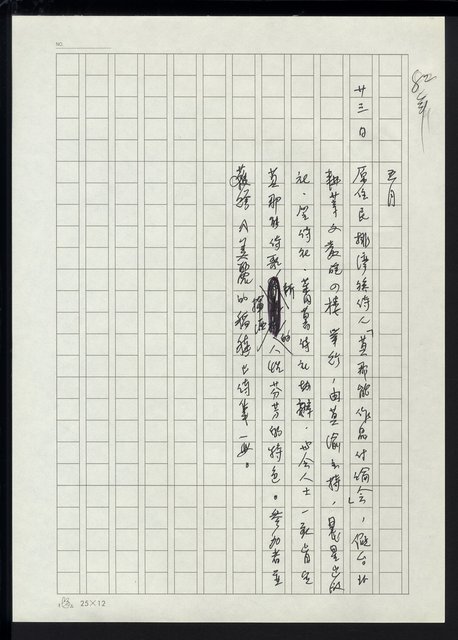 NO.
82年
五月
廿三日 原住民排灣族詩人「莫那能作品討論會」,假台北
耕莘文教院四樓舉行,由莫渝主持,晨星出版
社、笠詩社、蕃薯詩社協辦,與會人士一致肯定
莫那能詩歌 的人性芬芳的特色。參加者並
獲贈《美麗的稻穗》詩集一冊。
25×12